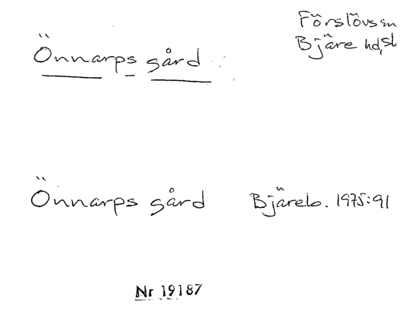 Önnarps gård
Förslövs sn
Bjäre hd, sk
Önnarps gård Bjäreb. 1975:91
Nr 19187